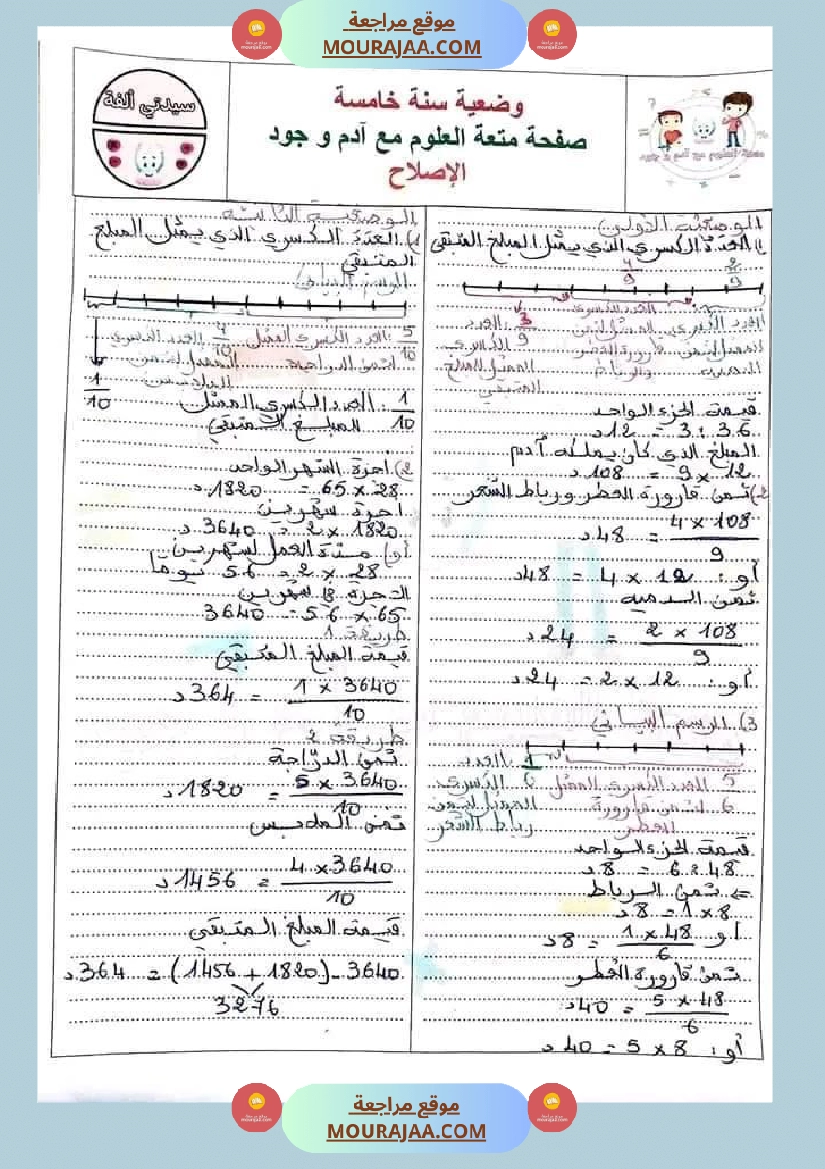 موقع مراجعة
MOURAJAA.COM
سيدتي ألفة
وضعية سنة خامسة
صفحة متعة العلوم مع آدم و جود
الإصلاح
الوضعية الأولى
1) العدد الكسري الذي يمثل المبلغ المتبقي
2/9
4/9
3/9 العدد
الكسري
الممثل للمبلغ
المتبقي
قيمة الجزء الواحد
36 : 3 = 12 د
المبلغ الذي كان يملكه آدم
12 × 9 = 108 د
2) ثمن قارورة العطر ورباط الشعر
4 × 108 / 9 = 48 د
أو : 12 × 4 = 48 د
ثمن الدمية
2 × 108 / 9 = 24 د
أو : 12 × 2 = 24 د
3) الرسم البياني
5/6 العدد الكسري الممثل لثمن قارورة العطر
1/6 العدد الكسري الممثل لثمن رباط الشعر
قيمة الجزء الواحد
48 : 6 = 8 د
ثمن الرباط
8 × 1 = 8 د
أو 1 × 48 / 6 = 8 د
ثمن قارورة العطر
5 × 48 / 6 = 40 د
أو : 8 × 5 = 40 د
الوضعية الثانية
1) العدد الكسري الذي يمثل المبلغ
المتبقي
الرسم البياني
5/10 : العدد الكسري الممثل لثمن الدراجة
4/10 العدد الكسري الممثل لثمن الملابس
1/10
1/10 : العدد الكسري الممثل
للمبلغ المتبقي
2) أجرة الشهر الواحد
28 × 65 = 1820 د
أجرة شهرين
1820 × 2 = 3640 د
أو) مدة العمل لشهرين
28 × 2 = 56 يوما
الأجرة شهرين
65 × 56 = 3640
طريقة 1
قيمة المبلغ المتبقي
1 × 3640 / 10 = 364 د
طريقة 2
ثمن الدراجة
5 × 3640 / 10 = 1820 د
ثمن الملابس
4 × 3640 / 10 = 1456 د
قيمة المبلغ المتبقي
3640 - (1820 + 1456) = 364 د
3276
موقع مراجعة
MOURAJAA.COM